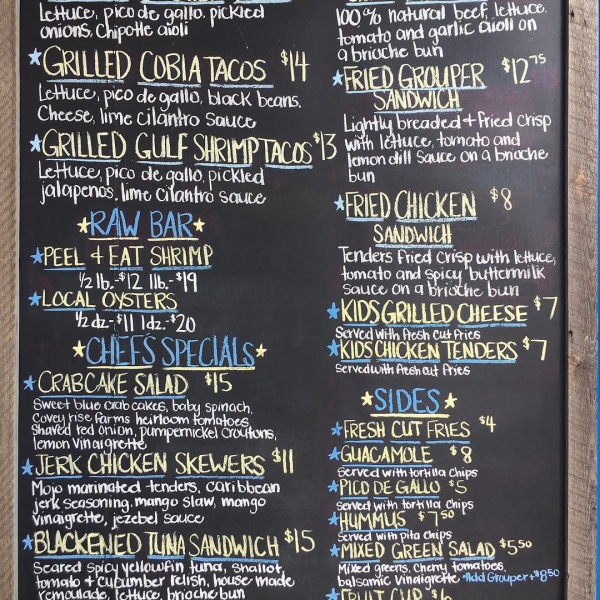 Lettuce, pico de gallo, pickled
onions, chipotle aioli
GRILLED COBIA TACOS $14
Lettuce, pico de gallo, black beans,
Cheese, lime cilantro sauce
GRILLED GULF SHRIMP TACOS $13
Lettuce, pico de gallo, pickled
jalapenos, lime cilantro sauce
RAW BAR
PEEL & EAT SHRIMP
1/2 lb.-$12 1lb.-$19
LOCAL OYSTERS
1/2 dz.-$11 1dz.-$20
CHEF'S SPECIALS
CRABCAKE SALAD $15
Sweet blue crab cakes, baby spinach,
Covey rise farms heirloom tomatoes,
Shaved red onion, pumpernickel croutons,
lemon vinaigrette
JERK CHICKEN SKEWERS $11
Mojo marinated tenders, caribbean
jerk seasoning, mango slaw, mango
vinaigrette, jezebel sauce
BLACKENED TUNA SANDWICH $15
Seared spicy yellowfin tuna, shallot,
tomato + cucumber relish, house made
remoulade, lettuce, brioche bun
100% natural beef, lettuce,
tomato and garlic aioli on
a brioche bun
FRIED GROUPER $12.75
SANDWICH
Lightly breaded + fried crisp
with lettuce, tomato and
lemon dill sauce on a brioche
bun
FRIED CHICKEN $8
SANDWICH
Tenders fried crisp with lettuce,
tomato and spicy buttermilk
sauce on a brioche bun
KIDS GRILLED CHEESE $7
Served with fresh cut fries
KIDS CHICKEN TENDERS $7
Served with fresh cut fries
SIDES
FRESH CUT FRIES $4
GUACAMOLE $8
Served with tortilla chips
PICO DE GALLO $5
served with tortilla chips
HUMMUS $7.50
Served with pita chips
MIXED GREEN SALAD $5.50
Mixed greens, cherry tomatoes,
balsamic vinaigrette *Add Grouper +$8.50
FRUIT CUP $6